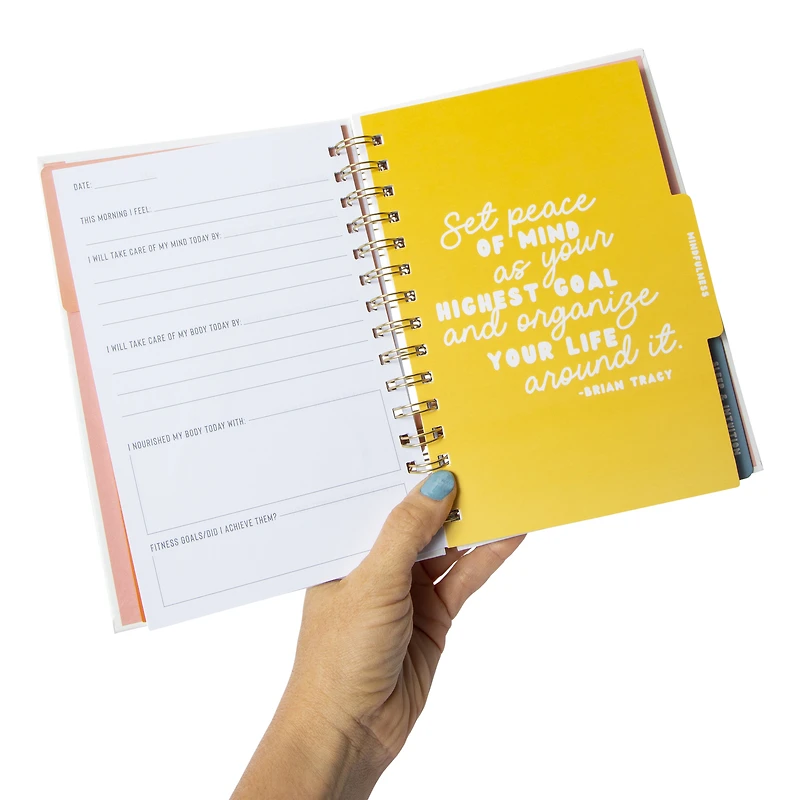 DATE:
THIS MORNING I FEEL:
I WILL TAKE CARE OF MY MIND TODAY BY:
I WILL TAKE CARE OF MY BODY TODAY BY:
I NOURISHED MY BODY TODAY WITH:
FITNESS GOALS/DID I ACHIEVE THEM?
Set peace
OF MIND
as your
HIGHEST GOAL
and organize
YOUR LIFE
around it.
-BRIAN TRACY
MINDFULNESS
SLEEP & INTUITION